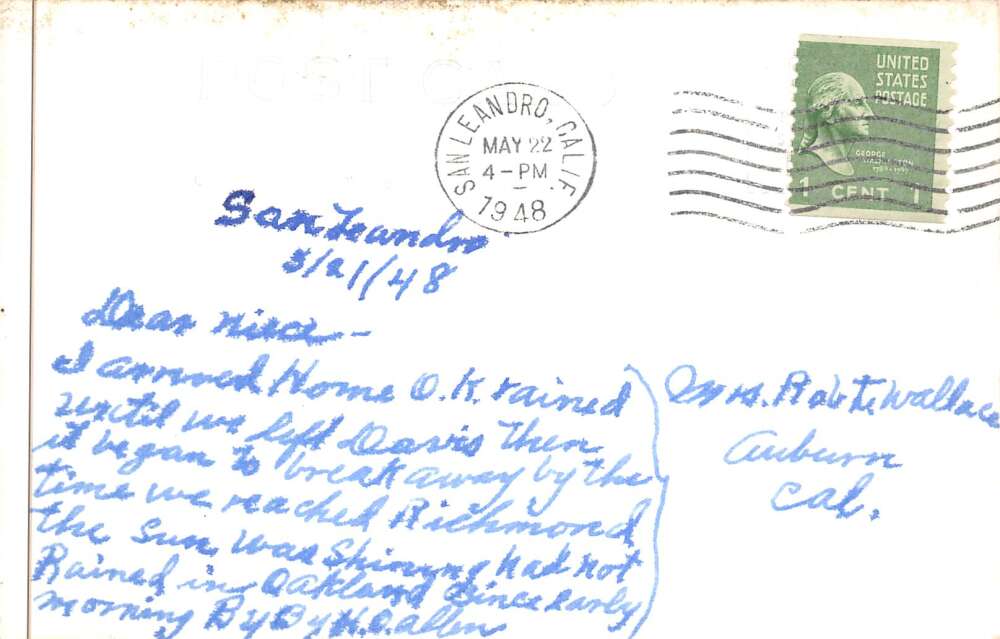 POST CARD
SAN LEANDRO, CALIF.
MAY 22
4-PM
1948
UNITED
STATES
POSTAGE
GEORGE
WASHINGTON
1789-1797
1 CENT 1
San Leandro
5/21/48
Dear niece -
I arrived Home O.K. rained
until we left Davis then
it began to break away by the
time we reached Richmond
the sun was shining had not
Rained in Oakland since early
morning By By H.O. Allen
Mrs. Robt. Wallace
Auburn
Cal.